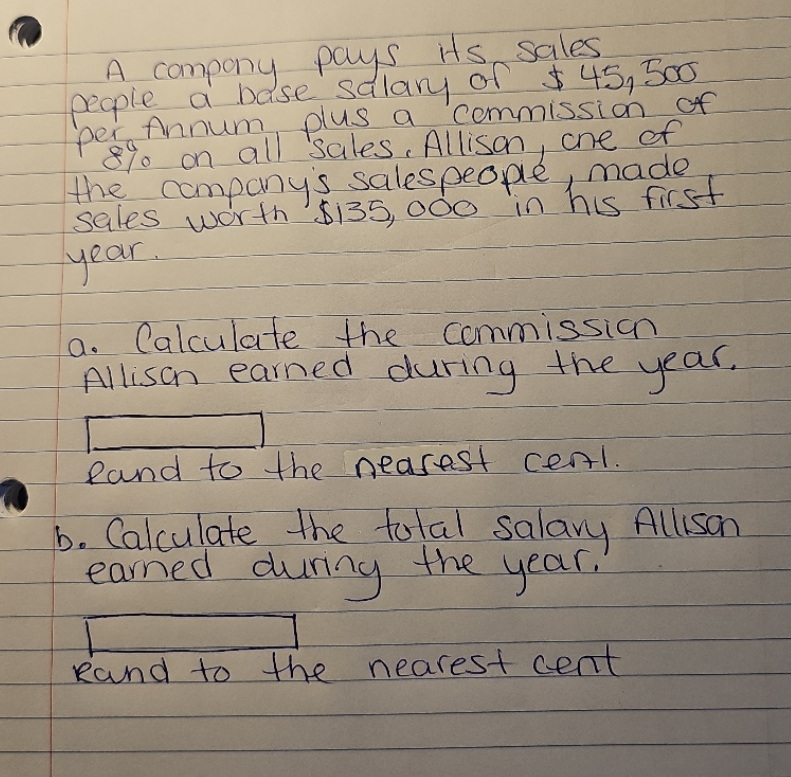 A company pays its sales
people a base salary of $45,500
per Annum plus a commission of
8% on all sales. Allison, one of
the company's salespeople, made
sales worth $135,000 in his first
year.
a. Calculate the commission
Allison earned during the year.
Rand to the nearest cent.
b. Calculate the total salary Allison
earned during the year.
Rand to the nearest cent